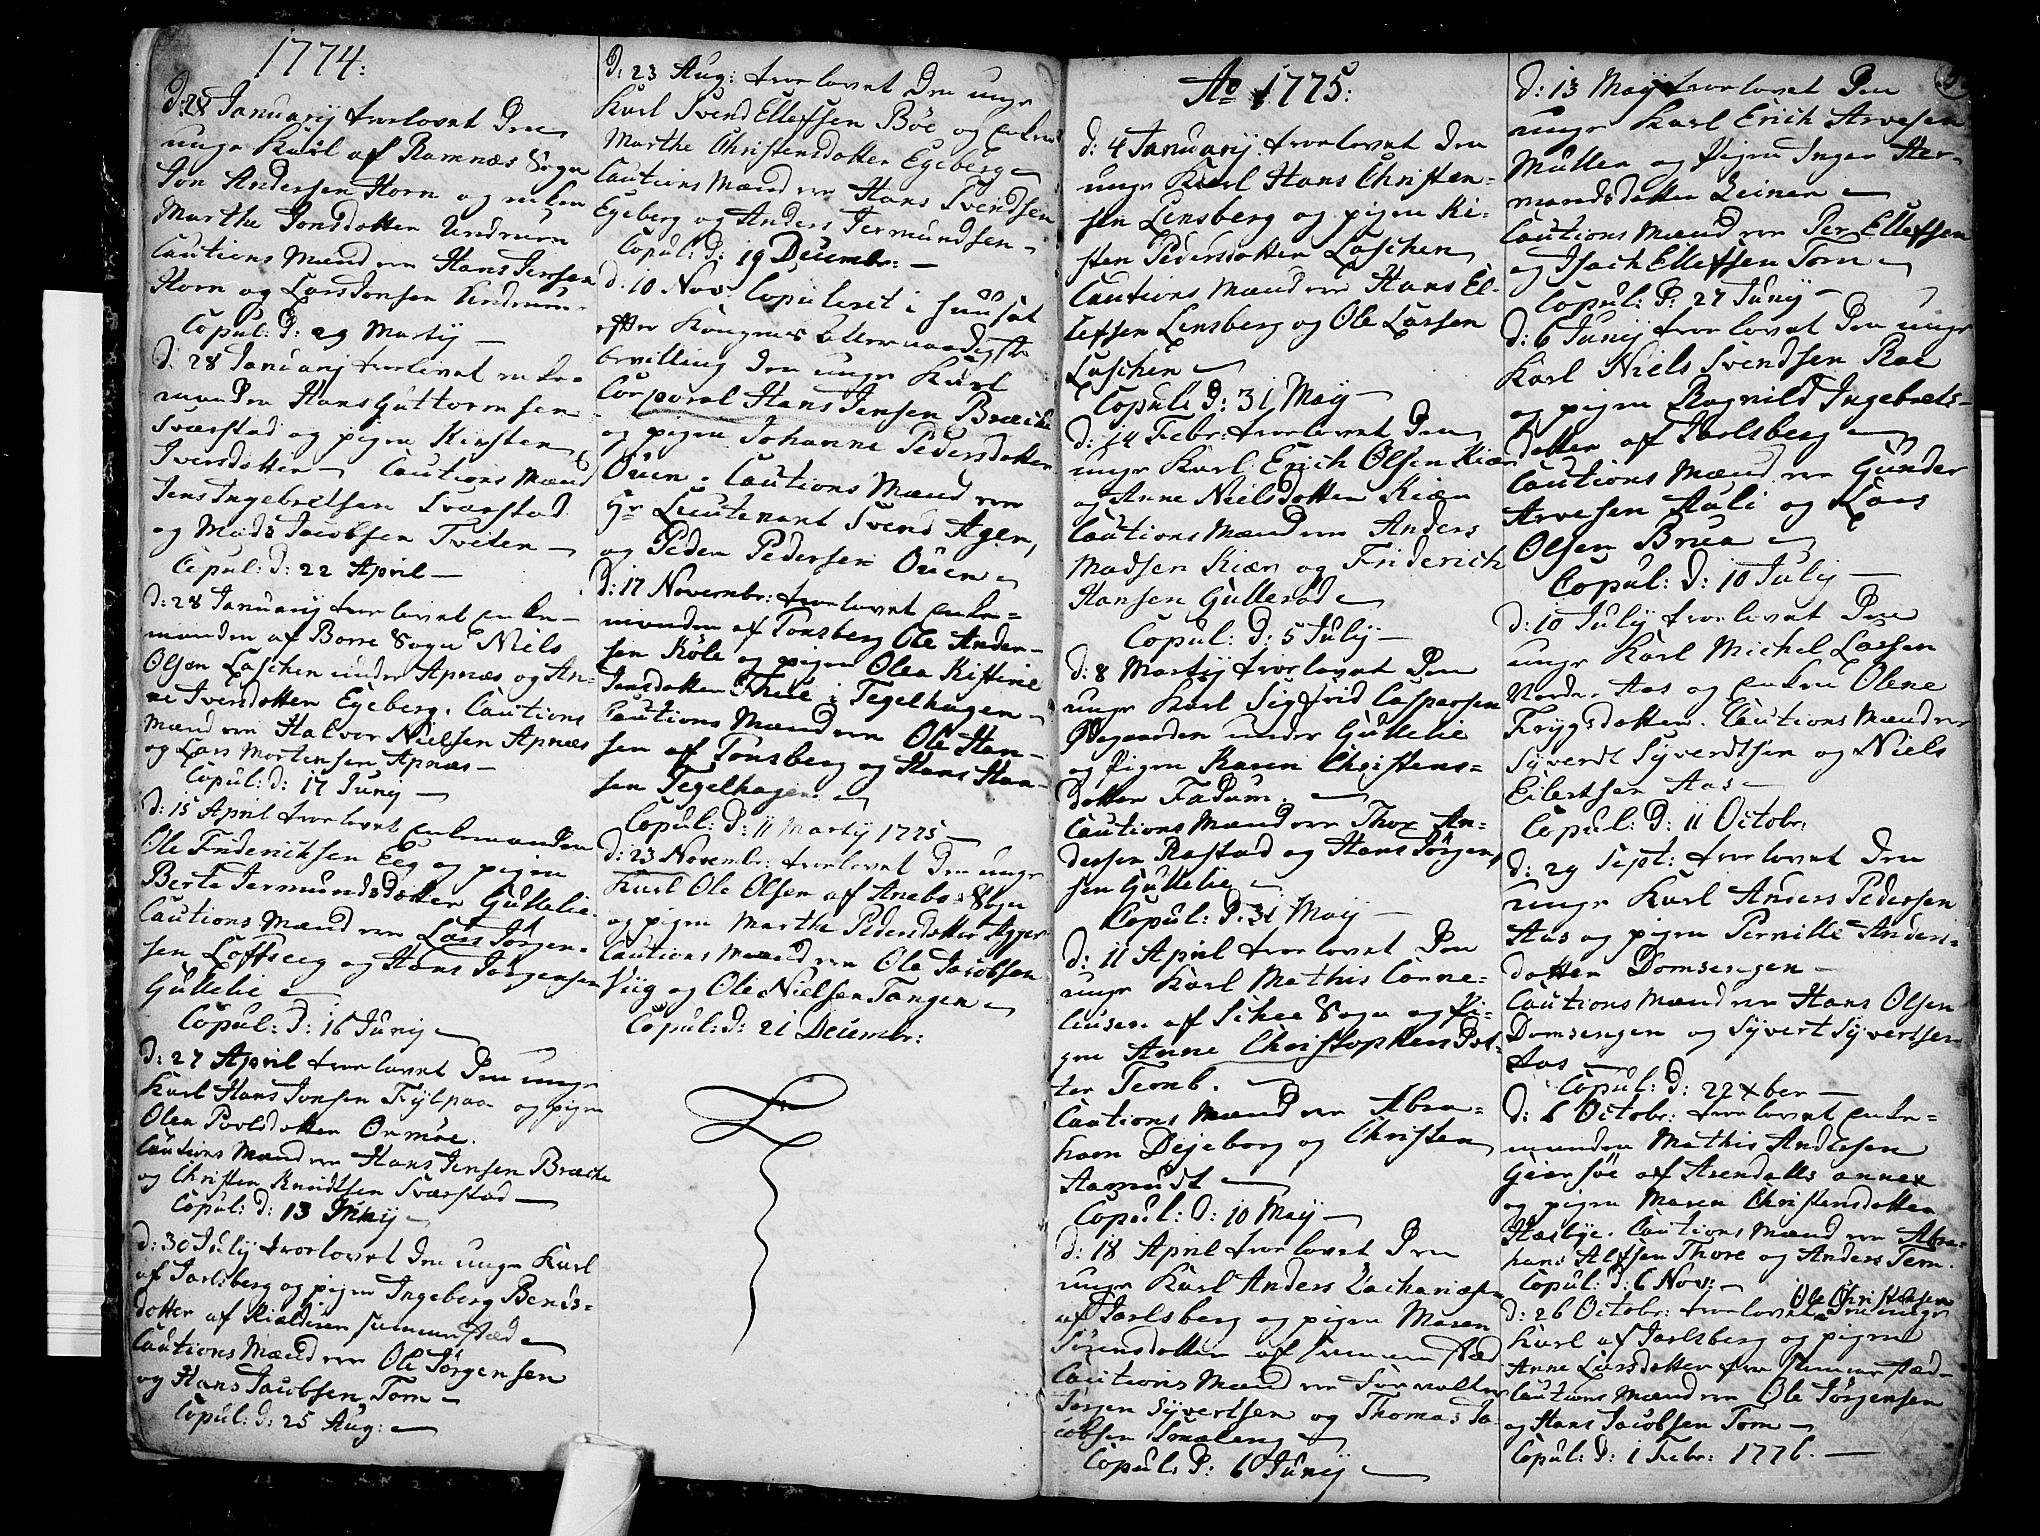 1774:
d: 28 Januarij trorlovet Den
unge Karl af Ramnæs Sogn
Jon Andersen Horn og enken
Marthe Jonsdotter Undrum
Cautions Mænd ere Hans Jensen
Horn og Lars Jonsen Undrum.
Copul: d: 29 Martij
d: 28 Januarij trorlovet enke-
manden Hans Guttormsen
Sværstad og pigen Kirsten
Iversdotter Cautions Mænd
Jens Ingebretsen Sværstad
og Mads Jacobsen Tveiten
Copul: d: 22 April
d: 28 Januarij trorlovet enke-
manden af Borre Sogn Niels
Olsen Laschen under Apnæs og An-
ne Svensdotter Egeberg. Cautions
Mænd ere Halvor Nielsen Apnæs
og Lars Mortensen Apnæs
Copul: d: 17 Juny
d: 15 April trorlovet enkemanden
Ole Fredericksen Eeg og pigen
Berte Jermundsdotter Gullelie.
Cautions Mænd ere Lars Jørgen-
sen Loftseeg og Hans Jørgensen
Gullelie
Copul: d: 16 Junij
d: 27 April trorlovet Den unge
Karl Hans Jonsen Fylpaa og pigen
Olea Povlsdotter Ormøe.
Cautions Mænd ere Hans Jensen Bræche
og Christen Knudtsen Sværstad
Copul: d: 13
d: 30 July trorlovet Den unge Karl
af Jarlsberg og pigen Ingeborg Bends-
dotter af summestæd
Cautions Mænd ere Ole Jørgensen
og Hans Jacobsen Tom
Copul: d: 25 Aug:
d: 23 Aug: trorlovet Den unge
Karl Svend Ellefsen Böe og enken
Marthe Christensdotter Egeberg
Cautions Mænd ere Hans Svendsen
Egeberg og Anders Jermundsen
Copul: d: 19 Decembr:
d: 10 Nov: Copuleret i huuset
efter Kongens allernaadigste
bevilling den unge Karl
Corporal Hans Jensen Bræche
og pigen Johanne Pedersdotter
Öuen. Cautions Mænd ere
Hr Lieutenant Svend Agen,
og Peder Pedersen Öuen
d: 17 Novembr: trorlovet enke-
manden af Tonsberg Ole Ander-
sen Köle og pigen Olea Kistine
Jensdotter Thue i Tegelhagen
Cautions Mænd ere Ole Han-
sen af Tonsberg og Hans Han-
sen Tegelhagen.
Copul: d: 11 Martij 1775
d: 23 Novembr: trorlovet Den unge
Karl Ole Olsen af Anebo Sogn
og pigen Marthe Pedersdotter Agger
Cautions Mænd ere Ole Jacobsen
Viig og Ole Nielsen Tangen
Copul: d: 21 Decembr:
Ao 1775:
d: 4 Januarij trorlovet Den
unge Karl Hans Christen-
sen Linsberg og pigen Ki-
sten Pedersdotter Laschen
Cautions Mænd ere Hans El-
lefsen Linsberg og Ole Larsen
Laschen
Copul: d: 31 May
d: 14 Febr: trorlovet Den
unge Karl Erich Olsen Kiær
og Anne Nielsdotter Kiær
Cautions Mænd ere Anders
Madsen Kiær og Friderich
Hansen Gullerød
Copul: d: 5 Julij
d: 8 Martij trorlovet Den
unge Karl Sigfrid Caspersen
Ødegaarden under Gullelie
og Pigen Karen Christens-
dotter Fadum.
Cautions Mænd ere Thor An-
dersen Rastad og Hans Jörgen-
sen Gullelie
Copul: d: 31 May
d: 11 April trorlovet Den
unge Karl Mathis Corne-
liusen af Schee Sogn og Pi-
gen Anne Christophersdot-
ter Temb.
Cautions Mænd ere Abra-
ham Dejeborg og Christen
Aamudt
Copul: d: 10 May
d: 18 April trorlovet Den
unge Karl Anders Zachariæsen
af Jarlsberg og pigen Maren
Sörensdotter af summestæd
Cautions Mænd ere Forvalter
Jørgen Syvertsen og Thomas Ja-
cobsen
Copul: d: 6 Junij
d: 13 Maij trorlovet Den
unge Karl Erich Arvesen
Müller og Pigen Inger Her-
mandsdotter Leinen
Cautions Mænd ere Per Ellefsen
og Isach Ellefsen Tom
Copul: d: 27 Junij
d: 6 Junij trorlovet Den unge
Karl Niels Svendsen Roe
og pigen Ragnild Ingebrets-
dotter af Jarlsberg
Cautions Mænd ere Gunder
Arvesen Auli og Lars
Olsen Brua
Copul: d: 10 July
d: 10 July trorlovet Den
unge Karl Michel Larsen
Nordre Aas og Enken Olene
Trygsdotter. Cautions Mænd ere
Syverdt Syverdtsen og Niels
Eilertsen Aas
Copul: d: 11 Octobr:
d: 29 Sept: trorlovet Den
unge Karl Anders Pedersen
Aas og pigen Pernille Anders-
dotter Domsengen
Cautions Mænd ere Hans Olsen
Domsengen og Syvert Syvertsen
Aas
Copul: d: 22 xber
d: 6 Octobr: trorlovet Enke-
manden Mathis Andersen
Geiersöe af Arendalls annex
og pigen Maren Christensdotter
Hæsbye. Cautions Mænd ere Abra-
ham Alfsen Thore og Anders Tem.
Copul: d: 6 Nov:
Ole Christensen
d: 26 Octobr: trorlovet Den unge
Karl af Jarlsberg og pigen
Anne Larsdotter fra summestæd
Cautions Mænd ere Ole Jörgensen
og Hans Jacobsen Tom
Copul: d: 1 Febr: 1776.